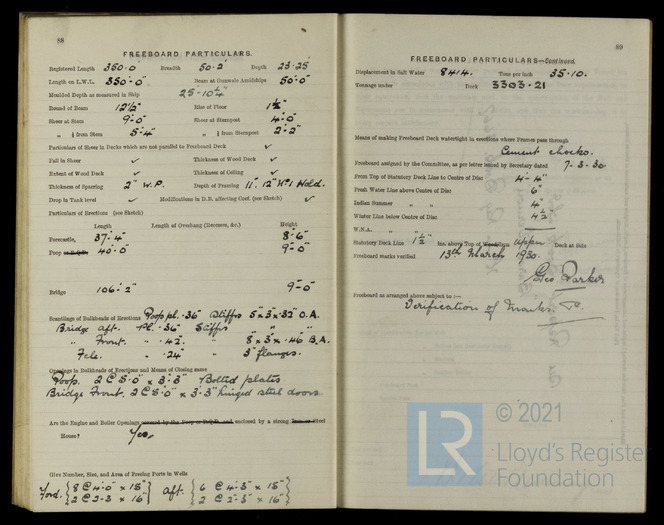 88
FREEBOARD PARTICULARS.
Registered Length 350.0' Breadth 50.2' Depth 23.25'
Length on L.W.L. 350'-0" Beam at Gunwale Amidships 50'-0"
Moulded Depth as measured in Ship 25'-10¼"
Round of Beam 12½" Rise of Floor 1½"
Sheer at Stem 9'-0" Sheer at Sternpost 4'-0"
" ⅛ from Stem 5'-4" " ⅛ from Sternpost 2'-2"
Particulars of Sheer in Decks which are not parallel to Freeboard Deck ✓
Fall in Sheer ✓ Thickness of Wood Deck ✓
Extent of Wood Deck ✓ Thickness of Ceiling ✓
Thickness of Sparring 2" W.P. Depth of Framing 11", 12" Nº1 Hold.
Drop in Tank level ✓ Modifications in D.B. affecting Coef. (see Sketch) ✓
Particulars of Erections (see Sketch)
Length Length of Overhang (Recesses, &c.) Height
Forecastle, 37'-4" 8'-6"
Poop or R.Q.D. 40'-0" 9'-0"
Bridge 106'-2" 9'-0"
Scantlings of Bulkheads of Erections Poop pl. .36" Stiffrs 5"x3"x.32" O.A.
Bridge Aft. Pl. .36" Stiffrs " "
" Front. " .42. " 8"x3"x.46" B.A.
Fcle. " .24" " 3" flanges.
Openings in Bulkheads of Erections and Means of Closing same
Poop. 2 @ 5'-0" x 3'-3" Bolted plates
Bridge Front. 2 @ 5'-0" x 3'-3" hinged steel doors
Are the Engine and Boiler Openings covered by the Poop or R.Q.D. and enclosed by a strong Iron or Steel
House? Yes,
Give Number, Size, and Area of Freeing Ports in Wells
Ford. { 8 @ 4'-0" x 15" } Aft. { 6 @ 4'-3" x 15" }
{ 2 @ 2'-3" x 16" } { 2 @ 2'-3" x 16" }
89
FREEBOARD PARTICULARS—Continued.
Displacement in Salt Water 8414. Tons per inch 35.10.
Tonnage under Deck 3303.21
Means of making Freeboard Deck watertight in erections where Frames pass through
Cement chocks.
Freeboard assigned by the Committee, as per letter issued by Secretary dated 7.3.30
From Top of Statutory Deck Line to Centre of Disc 4'-4"
Fresh Water Line above Centre of Disc 6"
Indian Summer " " 4"
Winter Line below Centre of Disc 4½
W.N.A. " " —
Statutory Deck Line 1½" ins. above Top of Upper Deck at Side
Freeboard marks verified 13th March 1930.
Geo. Parker
Freeboard as arranged above subject to :—
Verification of Marks.
© 2021
LR
Lloyd's Register
Foundation